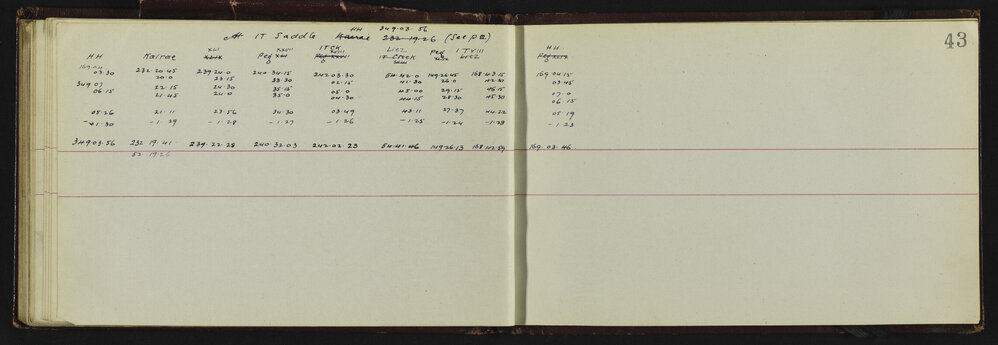 HH 349·03·56
At IT Saddle Kairae 232·19·26 (See p 2)
43
HH Kairae XLI XLIX Peg XXVII XLI ITCK XVIII Peg XXVIII Liez IT Creek Peg ITVIII Liez HH
169·04 03·30 232·20·45 239·24·0 240·34·15 242·03·30 54·42·0 149·26·45 168·43·15 169·04·15
20·0 23·15 33·30 02·15 41·30 26·0 42·30 03·45
349·07 22·15 24·30 35·15 05·0 45·00 29·15 46·15 07·0
06·15 21·45 24·0 35·0 04·30 44·15 28·30 45·30 06·15
05·26 21·11 23·56 34·30 03·49 43·11 27·37 44·22 05·19
-1·30 -1·29 -1·28 -1·27 -1·26 -1·25 -1·24 -1·23 -1·23
349·03·56 232·19·41 239·22·28 240·32·03 242·02·23 54·41·46 149·26·13 168·42·59 169·03·46
52·19·26